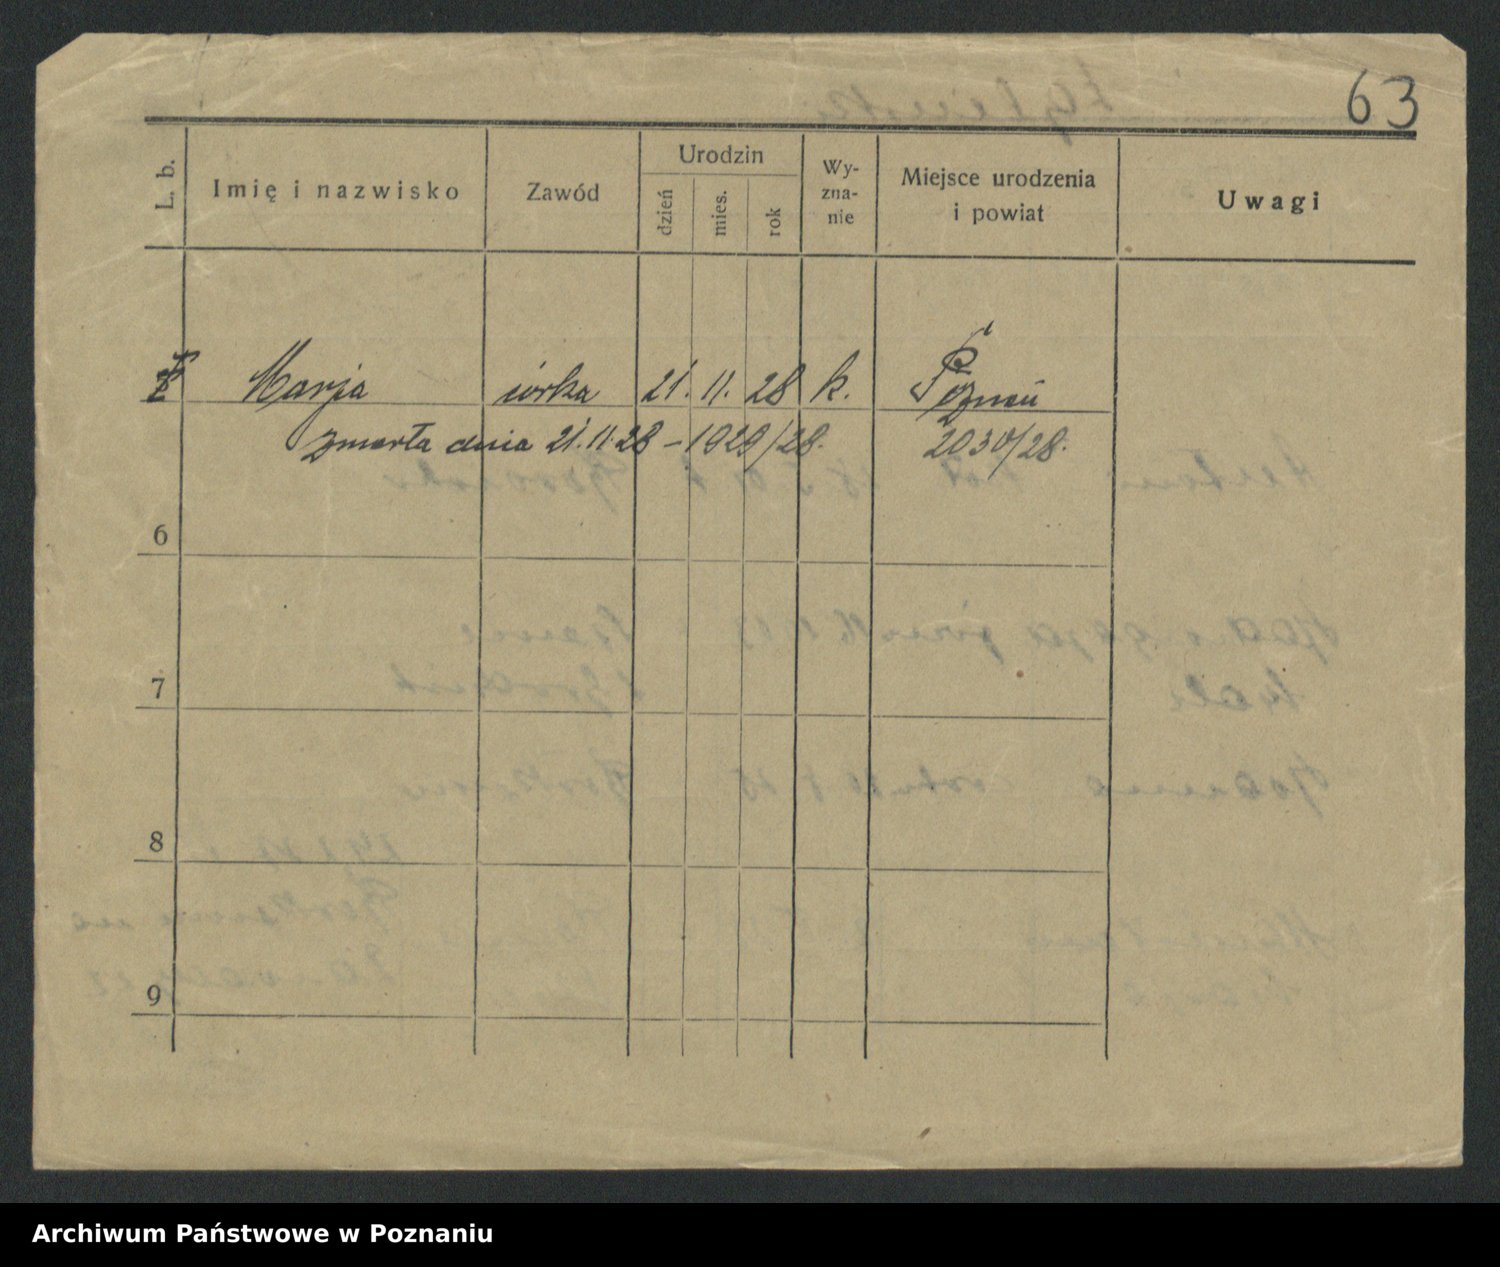 63
L. b. Imię i nazwisko Zawód Urodzin dzień mies. rok Wy-zna-nie Miejsce urodzenia i powiat Uwagi
Marja córka 21. 11. 28 k. Poznań
zmarła dnia 21.11.28 – 1929/28. 2030/28.
6
7
8
9
Archiwum Państwowe w Poznaniu